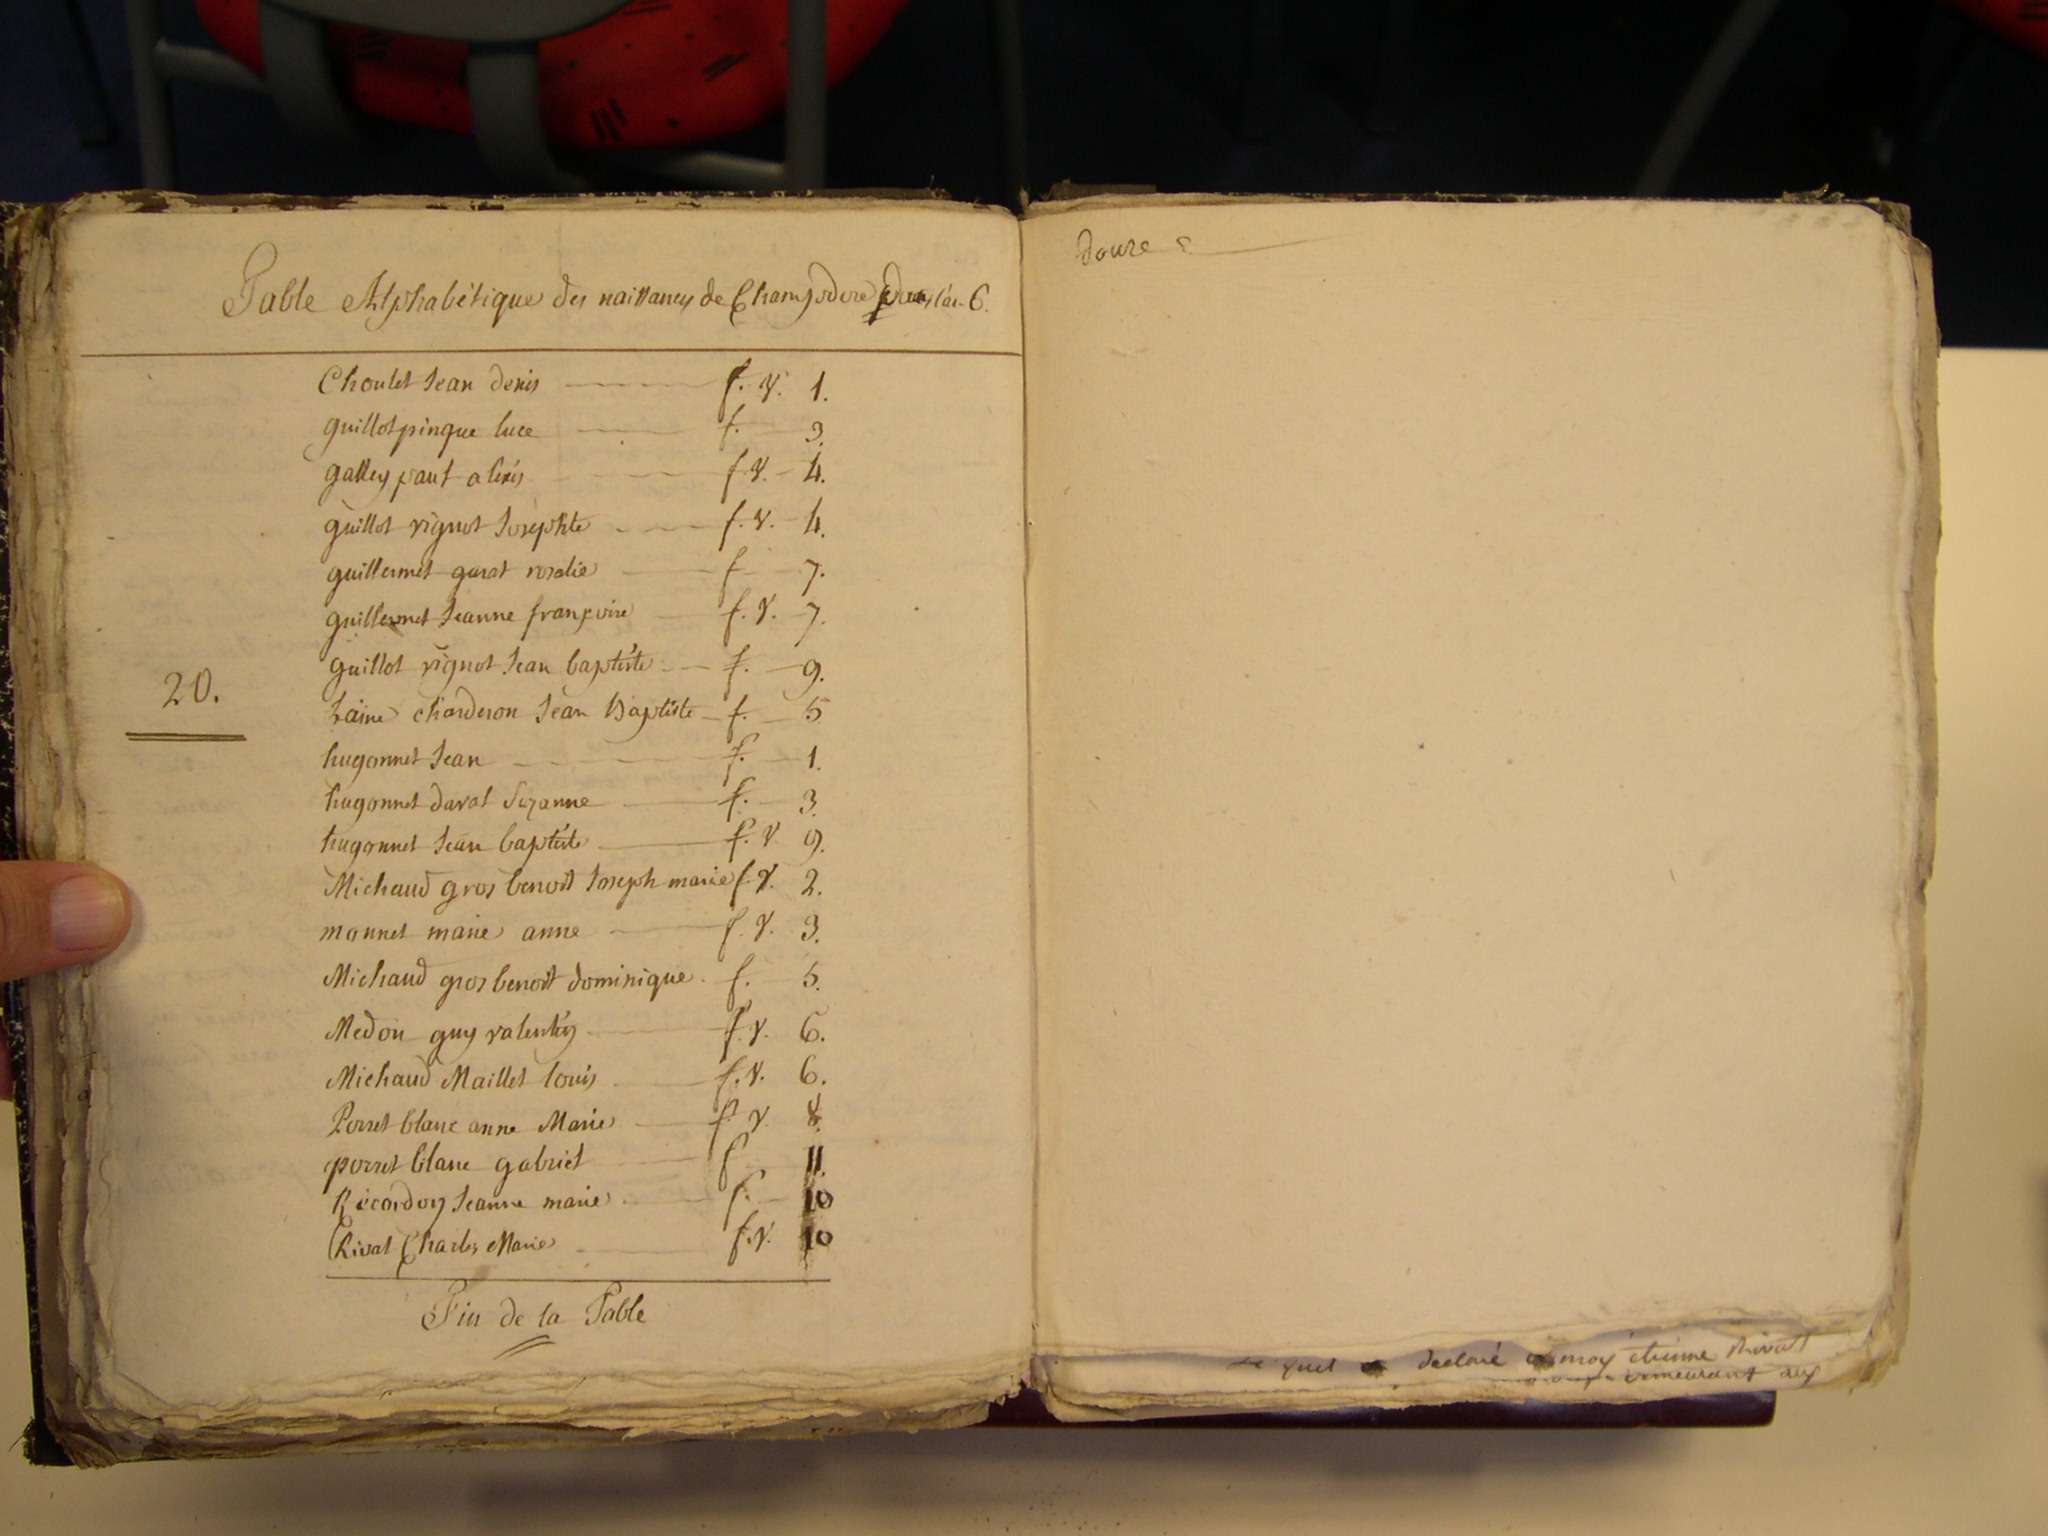 Table Alphabétique des naissances de Champdore pour l'an 6.
Choulet Jean denis f. v. 1.
guillot pinque luce f. 3.
galley paul alexis f. v. 4.
guillot vignot Josephte f. v. 4.
guillermet garat rosalie f 7.
guillermet Jeanne françoise f. v. 7.
guillot vignot Jean baptiste f. 9.
20.
haine charderon Jean Baptiste f. 5
hugonnet Jean f. 1.
hugonnet davat Suzanne f. 3.
hugonnet Jean baptiste f. v. 9.
Michaud gros benoit Joseph marie f. v. 2.
monnet marie anne f. v. 3.
Michaud gros benoit dominique f. 5.
Medon guy valentin f. v. 6.
Michaud Maillet louis f. v. 6.
Porret blanc anne Marie f. v. 8.
porret blanc gabriel f 11.
Récordon Jeanne marie f. 10
Rivat Charles Marie f. v. 10
Fin de la Table
Douze
le quel declaré a moy étienne Rivat
demeurant aux